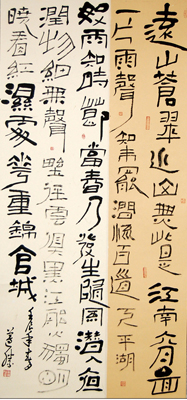 遠山蒼翠近山無此是江南六月圖
一片雨聲知未罷澗流百道下平湖
好雨知時節當春乃發生隨風潛入夜
潤物細無聲野徑雲俱黑江船火獨明
曉看紅濕處花重錦官城